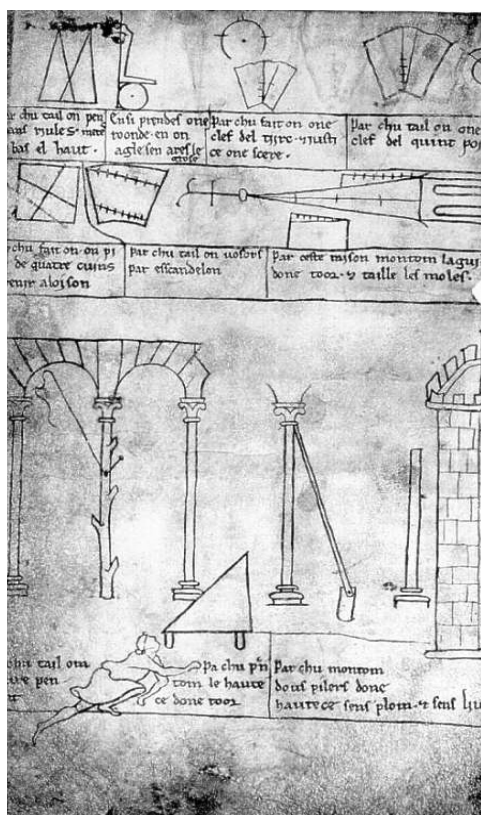 r chu tail on pen
ans riules mete
bas el haut.
Ensi prendes one
roonde en on
agle sen ares le
grose
Par chu fait on one
clef del tiirc
ce one scere.
Par chu tail on one
clef del quint poi
chu fait on on pi
de quatre cuins
enir aloison
Par chu tail on vosors
par escandelon
Par ceste raison montom lagui
done toor. taille les moles.
chu tail om
pen
Pa chu prn
tom le haute
ce done toor
Par chu montom
dous pilers done
hautece sens plom. sens